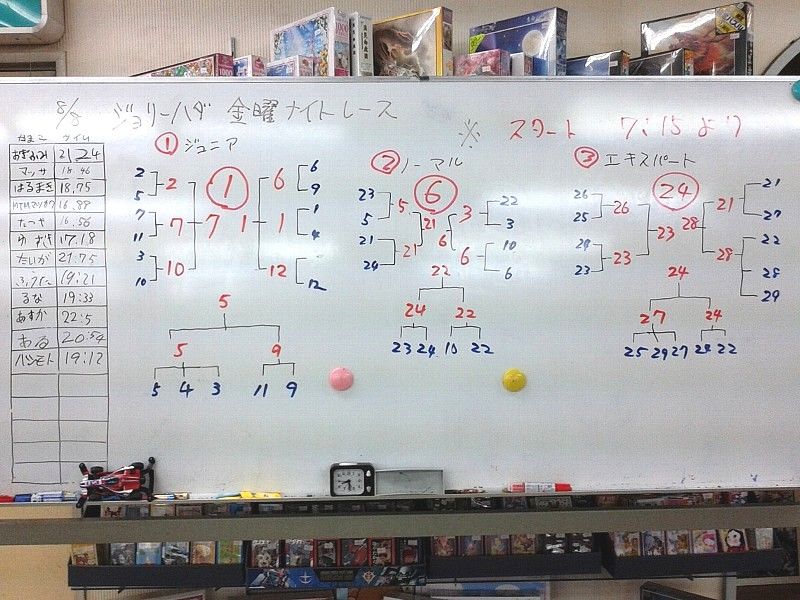 8/8 ジョリーハダ 金曜ナイトレース
※ スタート 7:15より
なまえ タイム
21.24
マッサ 18.46
はるまき 18.75
16.99
たつや 16.56
ゆうき 17.18
たいが 21.75
19:21
るな 19:33
あすか 22:5
ある 20:54
ハシモト 19:12
① ジュニア
2 2 1 6 6
5 9
7 7 7 1 1 1
11 4
3 10 12
10 12
5
5 9
5 4 3 11 9
② ノーマル
6
23 5 21 3 22
5 3
21 21 6 6 10
24 6
22
24 22
23 24 10 22
③ エキスパート
24
26 26 21 21
25 27
23 28
24 23 28 22
23 28
29
24
27 24
25 29 27 24 22